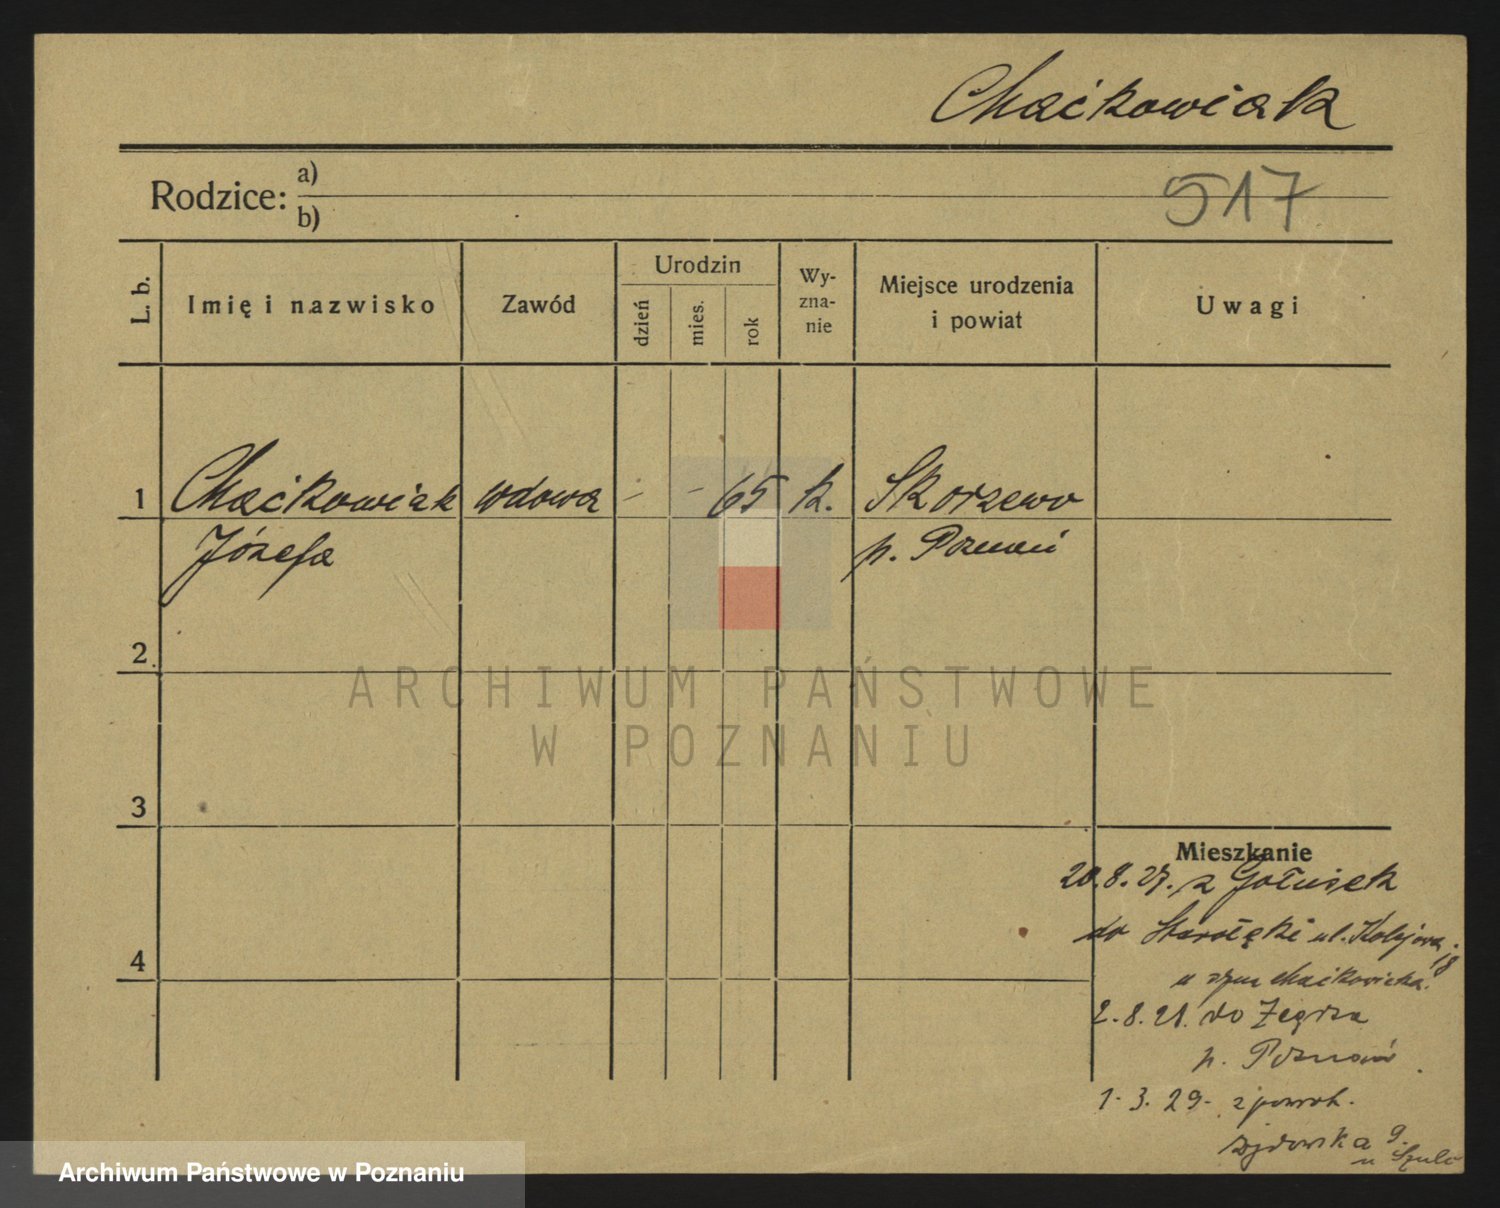 Maćkowiak
Rodzice: a)
b)
517
L. b.
Imię i nazwisko
Zawód
Urodzin
dzień
mies.
rok
Wy-
zna-
nie
Miejsce urodzenia
i powiat
Uwagi
1 Maćkowiak wdowa - - 65 k. Skorzewo
Józefa p. Poznań
2
3
4
ARCHIWUM PAŃSTWOWE
W POZNANIU
Mieszkanie
20.8.27. z Gołusek
do Starołęki ul. Kolejowa 18
u syna Maćkowiaka.
2.8.28. do Zegrza
p. Poznań
1.3.29. z powrot.
9.
u Szulc
Archiwum Państwowe w Poznaniu